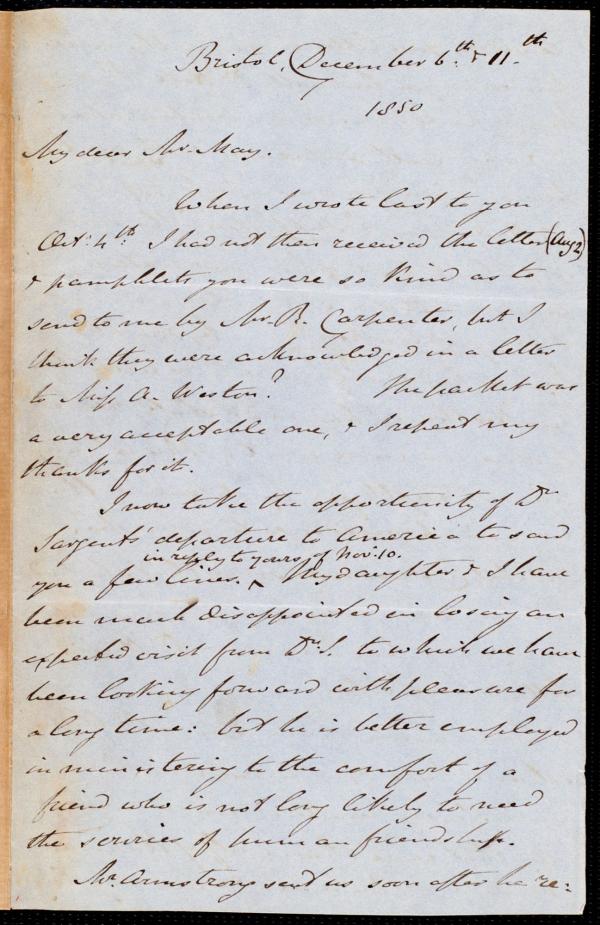 Bristol, December 6th. & 11th
1850
My dear Mr. May.
When I wrote last to you
Oct: 4th. I had not then received the letter (Aug 2)
& pamphlets you were so kind as to
send to me by Mr. R. Carpenter, but I
think they were acknowledged in a letter
to Miss A. Weston? The packet was
a very acceptable one, & I repeat my
thanks for it.
I now take the opportunity of Dr
Sargent's departure to America to send
in reply to yours of Nov: 10.
you a few lines. ^ My daughter & I have
been much disappointed in losing an
expected visit from Dr. S. to which we have
been looking forward with pleasure for
a long time: but he is better employed
in ministering to the comfort of a
friend who is not long likely to need
the services of human friendship.
Mr. Armstrong sent us soon after he re: